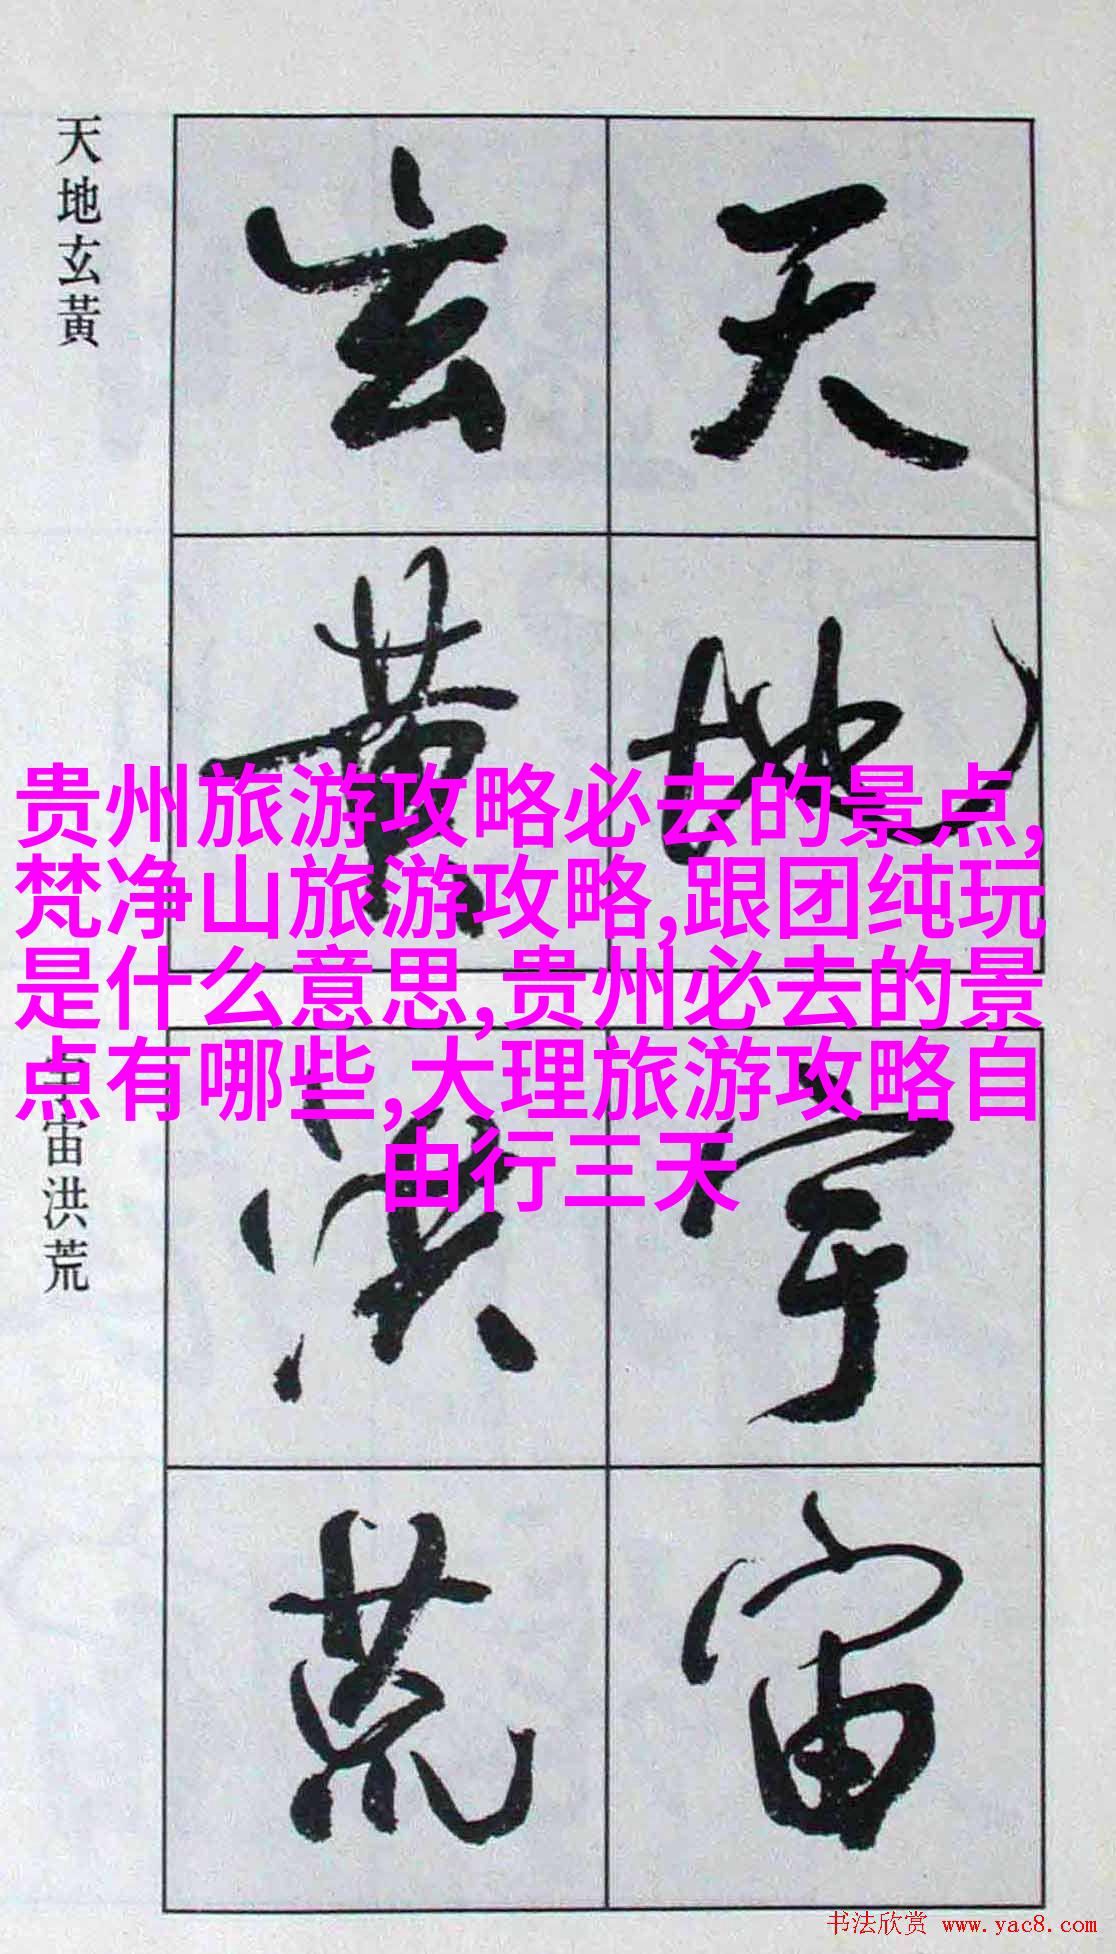 天地玄黃
天地
玄黃
贵州旅游攻略必去的景点,
梵净山旅游攻略,跟团纯玩
是什么意思,贵州必去的景
点有哪些,大理旅游攻略自
由行三天
宇宙洪荒
宇宙
洪荒
书法欣赏 www.yac8.com